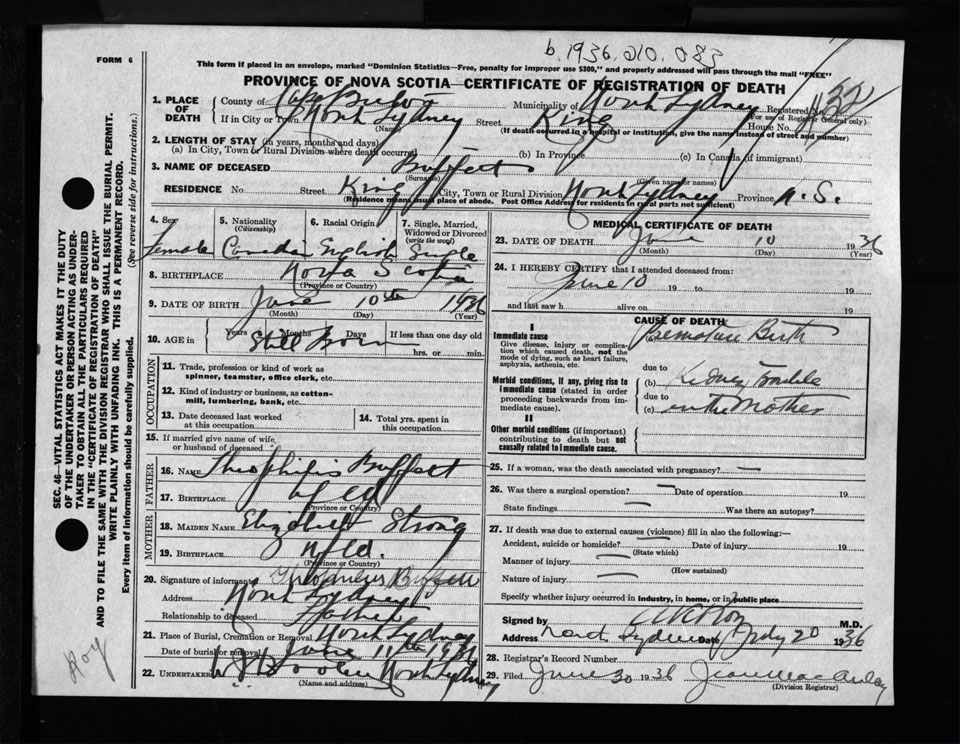 b. 1936. 210. 083
FORM 6
This form if placed in an envelope, marked "Dominion Statistics—Free, penalty for improper use $300," and properly addressed will pass through the mail "FREE"
PROVINCE OF NOVA SCOTIA—CERTIFICATE OF REGISTRATION OF DEATH
1. PLACE OF DEATH
County of Cape Breton Municipality of North Sydney Registered No.
(For use of Registrar General only)
If in City or Town North Sydney Street King House No.
(Name) (If death occurred in a hospital or institution, give the name instead of street and number)
2. LENGTH OF STAY (in years, months and days)
(a) In City, Town or Rural Division where death occurred (b) In Province (c) In Canada (if immigrant)
3. NAME OF DECEASED Buffett
(Surname) (Given name or names)
RESIDENCE No. Street King City, Town or Rural Division North Sydney Province N.S.
(Residence means usual place of abode. Post Office Address for residents in rural parts not sufficient)
4. Sex Female
5. Nationality (Citizenship) Canadian
6. Racial Origin English
7. Single, Married, Widowed or Divorced (write the word) Single
8. BIRTHPLACE Nova Scotia
(Province or Country)
9. DATE OF BIRTH June 10th 1936
(Month) (Day) (Year)
10. AGE in Years Months Days If less than one day hrs. or min.
Still Born
OCCUPATION
11. Trade, profession or kind of work as spinner, teamster, office clerk, etc.
12. Kind of industry or business, as cotton-mill, lumbering, bank, etc.
13. Date deceased last worked at this occupation
14. Total yrs. spent in this occupation
15. If married give name of wife or husband of deceased
FATHER
16. NAME Buffett
17. BIRTHPLACE Nfld
(Province or Country)
MOTHER
18. MAIDEN NAME Elizabeth Strong
19. BIRTHPLACE Nfld.
(Province or Country)
20. Signature of informant
Address North Sydney
Relationship to deceased Father
21. Place of Burial, Cremation or Removal North Sydney
Date of burial or removal June 11th 1936
22. UNDERTAKER North Sydney
(Name and address)
MEDICAL CERTIFICATE OF DEATH
23. DATE OF DEATH June 10 1936
(Month) (Day) (Year)
24. I HEREBY CERTIFY that I attended deceased from:
June 10 19 to 19
and last saw h alive on 19
CAUSE OF DEATH
I
Immediate cause
Give disease, injury or complication which caused death, not the mode of dying, such as heart failure, asphyxia, asthenia, etc.
(a) Premature Birth
due to
Morbid conditions, if any, giving rise to immediate cause (stated in order proceeding backwards from immediate cause).
(b) Kidney Trouble
due to
(c) in the Mother
II
Other morbid conditions (if important) contributing to death but not causally related to immediate cause.
25. If a woman, was the death associated with pregnancy?
26. Was there a surgical operation? Date of operation 19
State findings Was there an autopsy?
27. If death was due to external causes (violence) fill in also the following:—
Accident, suicide or homicide? Date of injury 19
(State which)
Manner of injury
(How sustained)
Nature of injury
Specify whether injury occurred in industry, in home, or in public place
Signed by M.D.
Address North Sydney Date July 20 1936
28. Registrar's Record Number
29. Filed June 30 1936
(Division Registrar)
SEC. 46—VITAL STATISTICS ACT MAKES IT THE DUTY
OF THE UNDERTAKER OR PERSON ACTING AS UNDER-
TAKER TO OBTAIN ALL THE PARTICULARS REQUIRED
IN THE "CERTIFICATE OF REGISTRATION OF DEATH"
AND TO FILE THE SAME WITH THE DIVISION REGISTRAR WHO SHALL ISSUE THE BURIAL PERMIT.
WRITE PLAINLY WITH UNFADING INK. THIS IS A PERMANENT RECORD.
Every item of information should be carefully supplied. (See reverse side for instructions.)
Roy